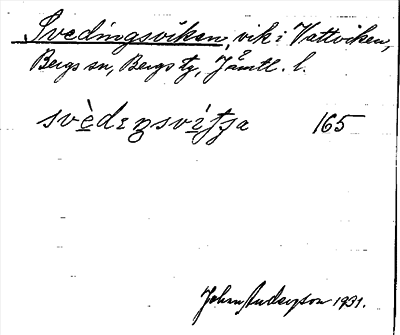 Svedingsviken, vik i Vattviken,
Bergs sn, Bergs tg, Jämtl. l.
svèdɪŋsvìtʃa 165
Johan Anderson 1931.